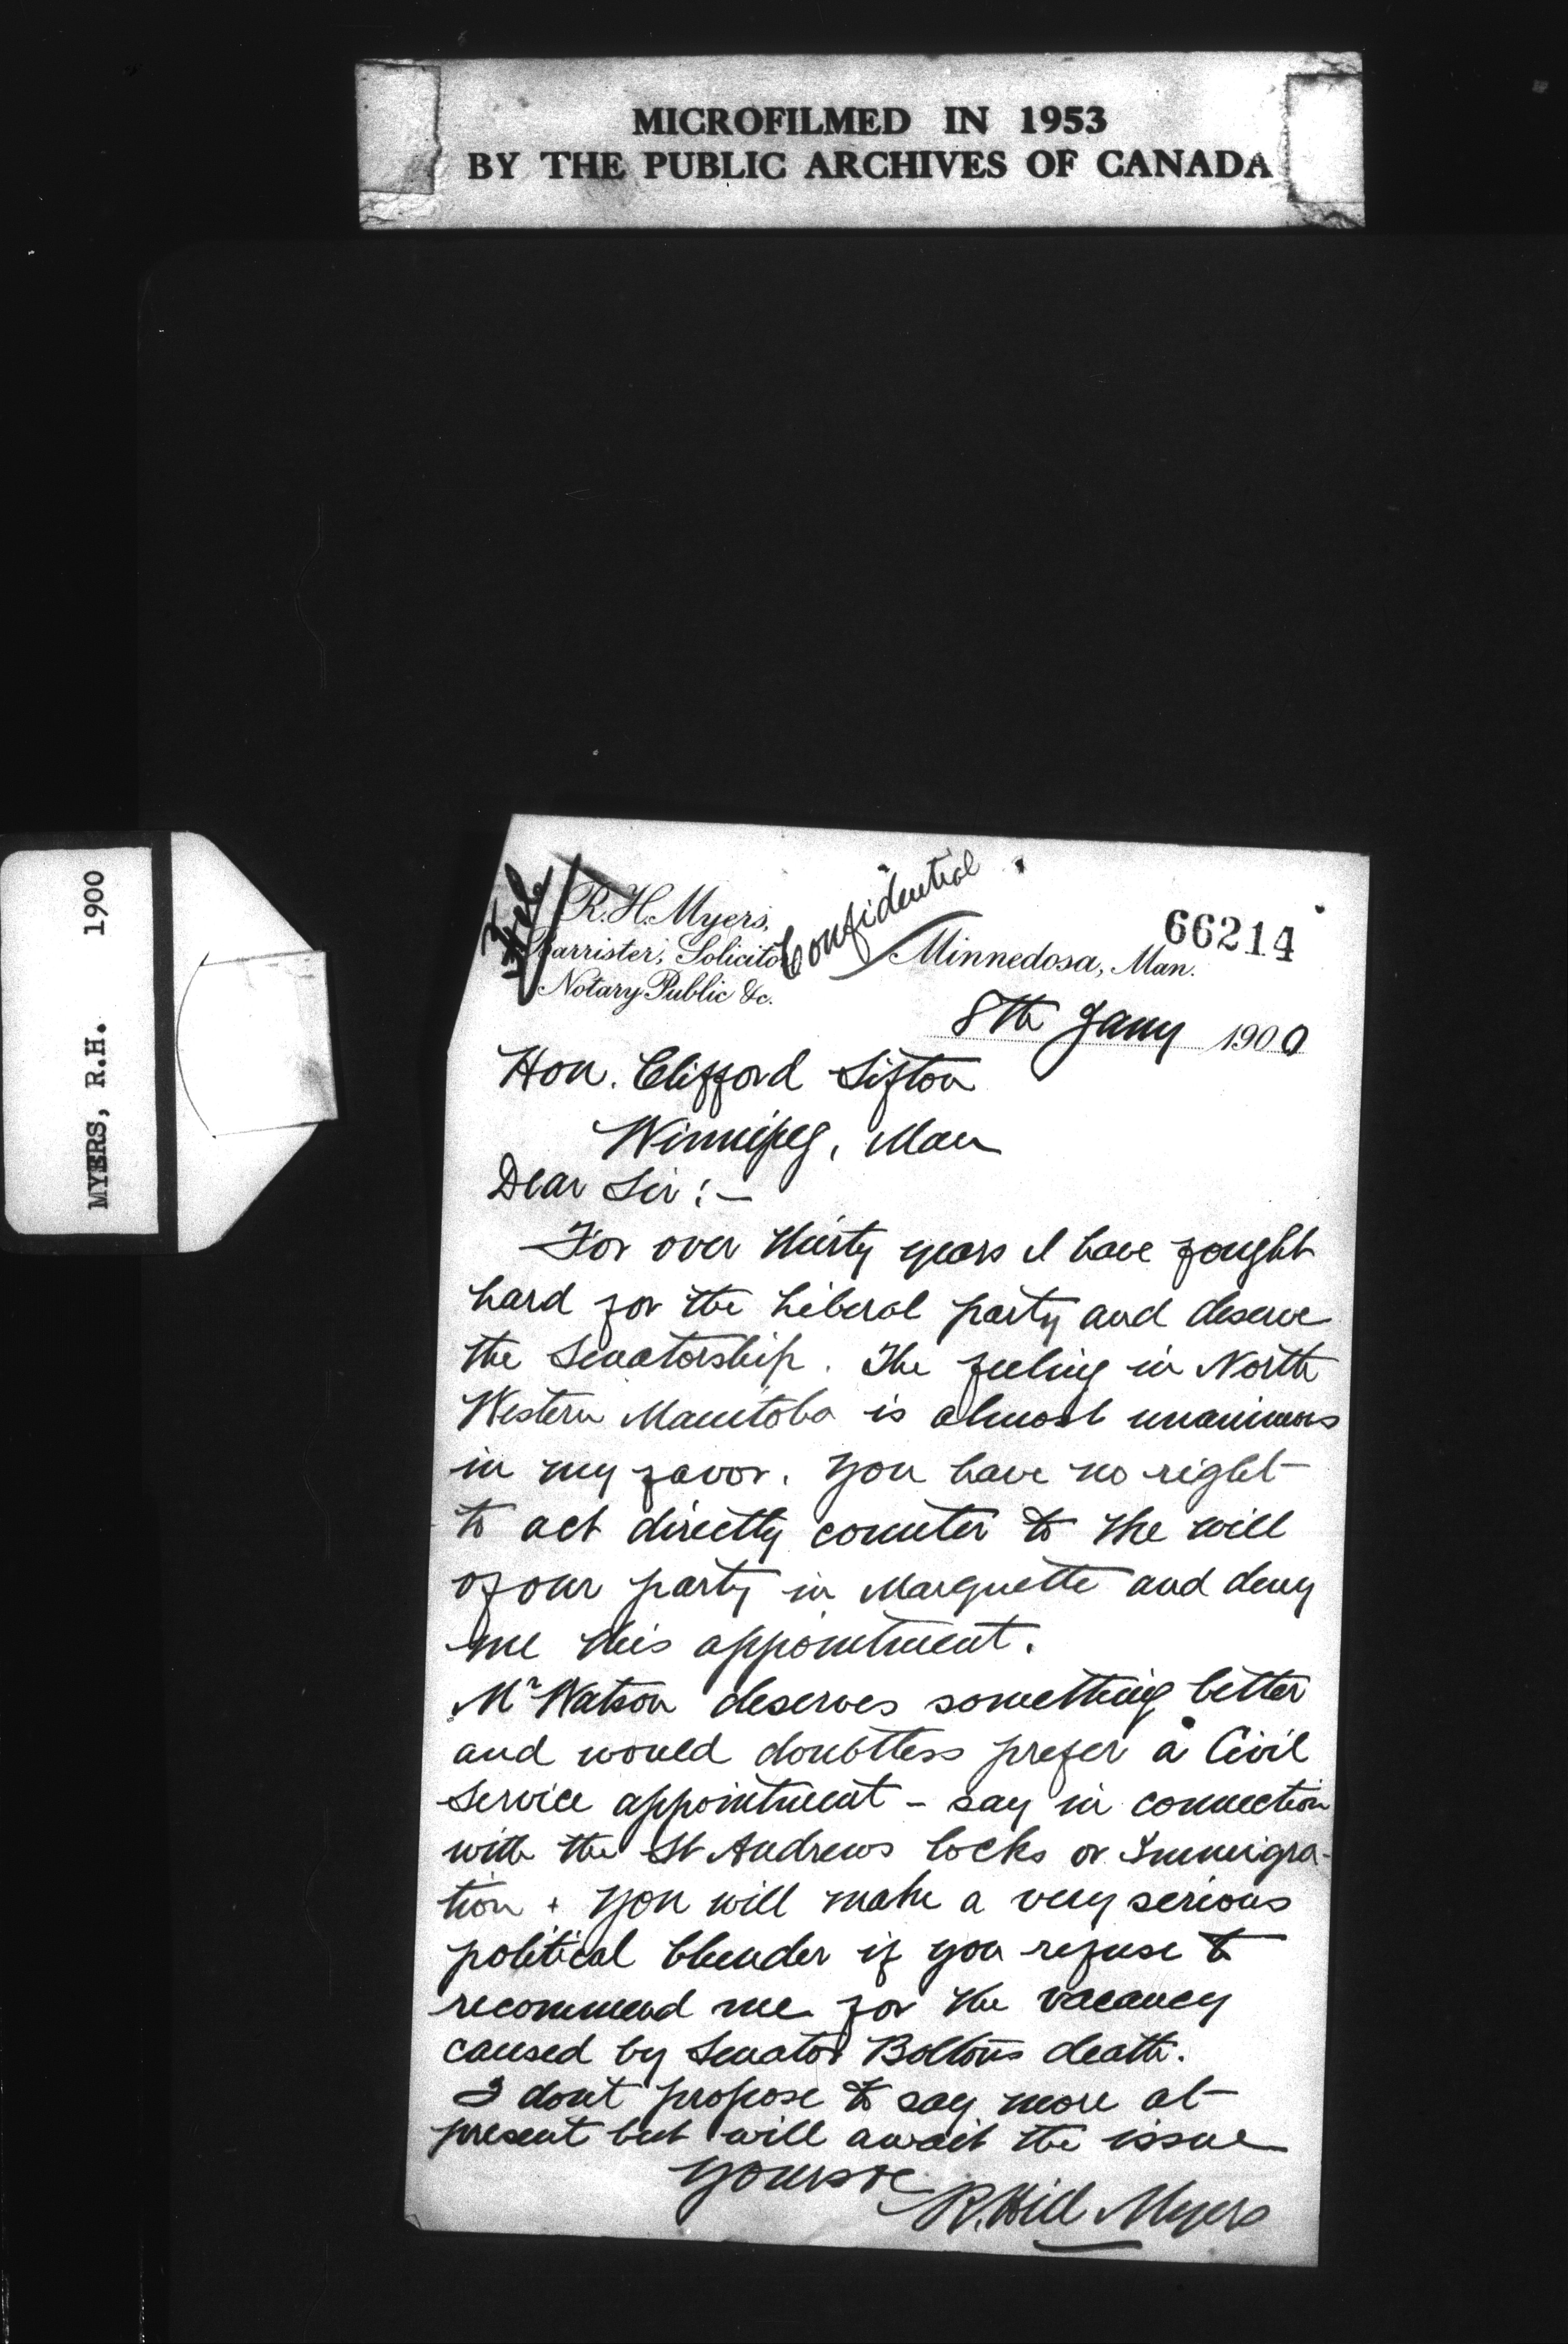 MICROFILMED IN 1953
BY THE PUBLIC ARCHIVES OF CANADA
MYERS, R.H. 1900
File
R. H. Myers,
Barrister, Solicitor
Notary Public &c.
Confidential
66214
Minnedosa, Man.
8th Jany 1900
Hon. Clifford Sifton
Winnipeg, Man
Dear Sir :—
For over thirty years I have fought
hard for the Liberal party and deserve
the Senatorship. The feeling in North
Western Manitoba is almost unanimous
in my favor. You have no right
to act directly counter to the will
of our party in Marquette and deny
me this appointment.
Mr Watson deserves something better
and would doubtless prefer a Civil
Service appointment - say in connection
with the St Andrews locks or Immigra-
tion + You will make a very serious
political blunder if you refuse to
recommend me for the vacancy
caused by Senator Boltons death.
I dont propose to say more at
present but will await the issue
Yours &c
R. Hill Myers